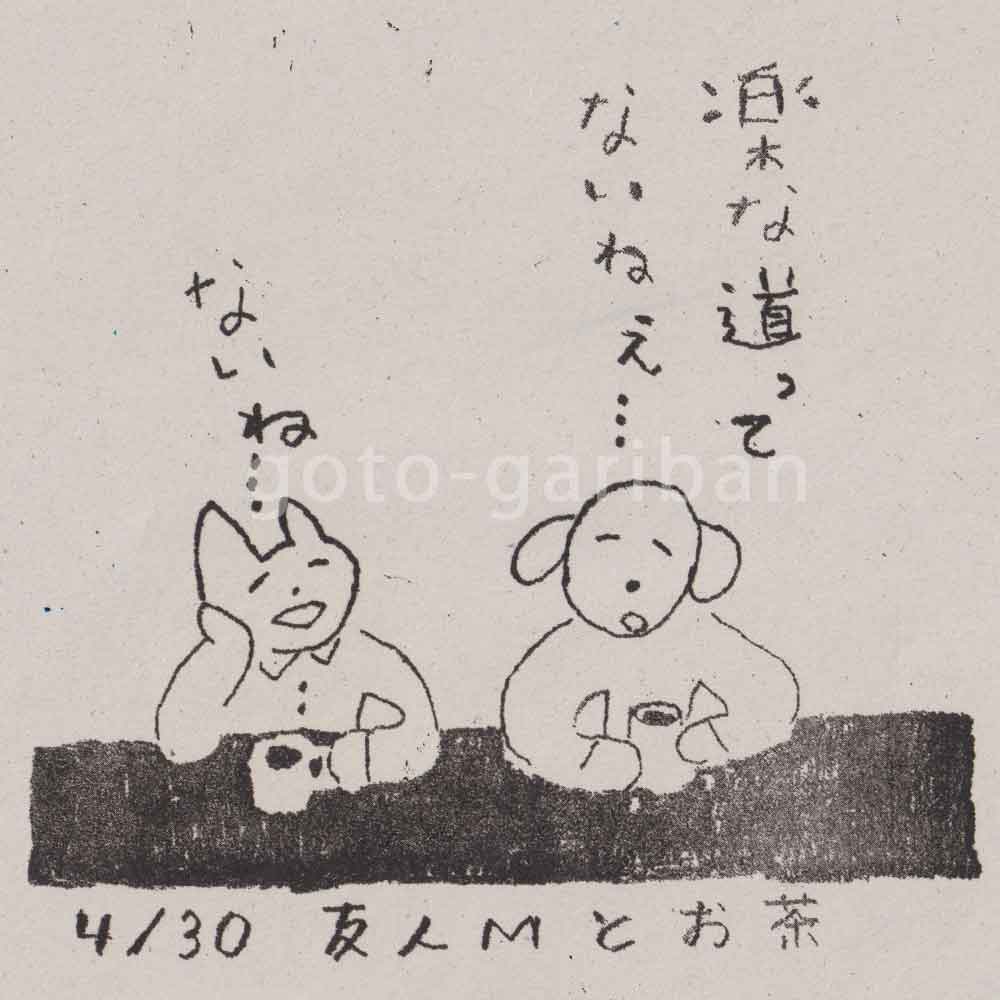 楽な道って
ないねぇ…
ないね…
goto-gariban
4/30 友人Mとお茶